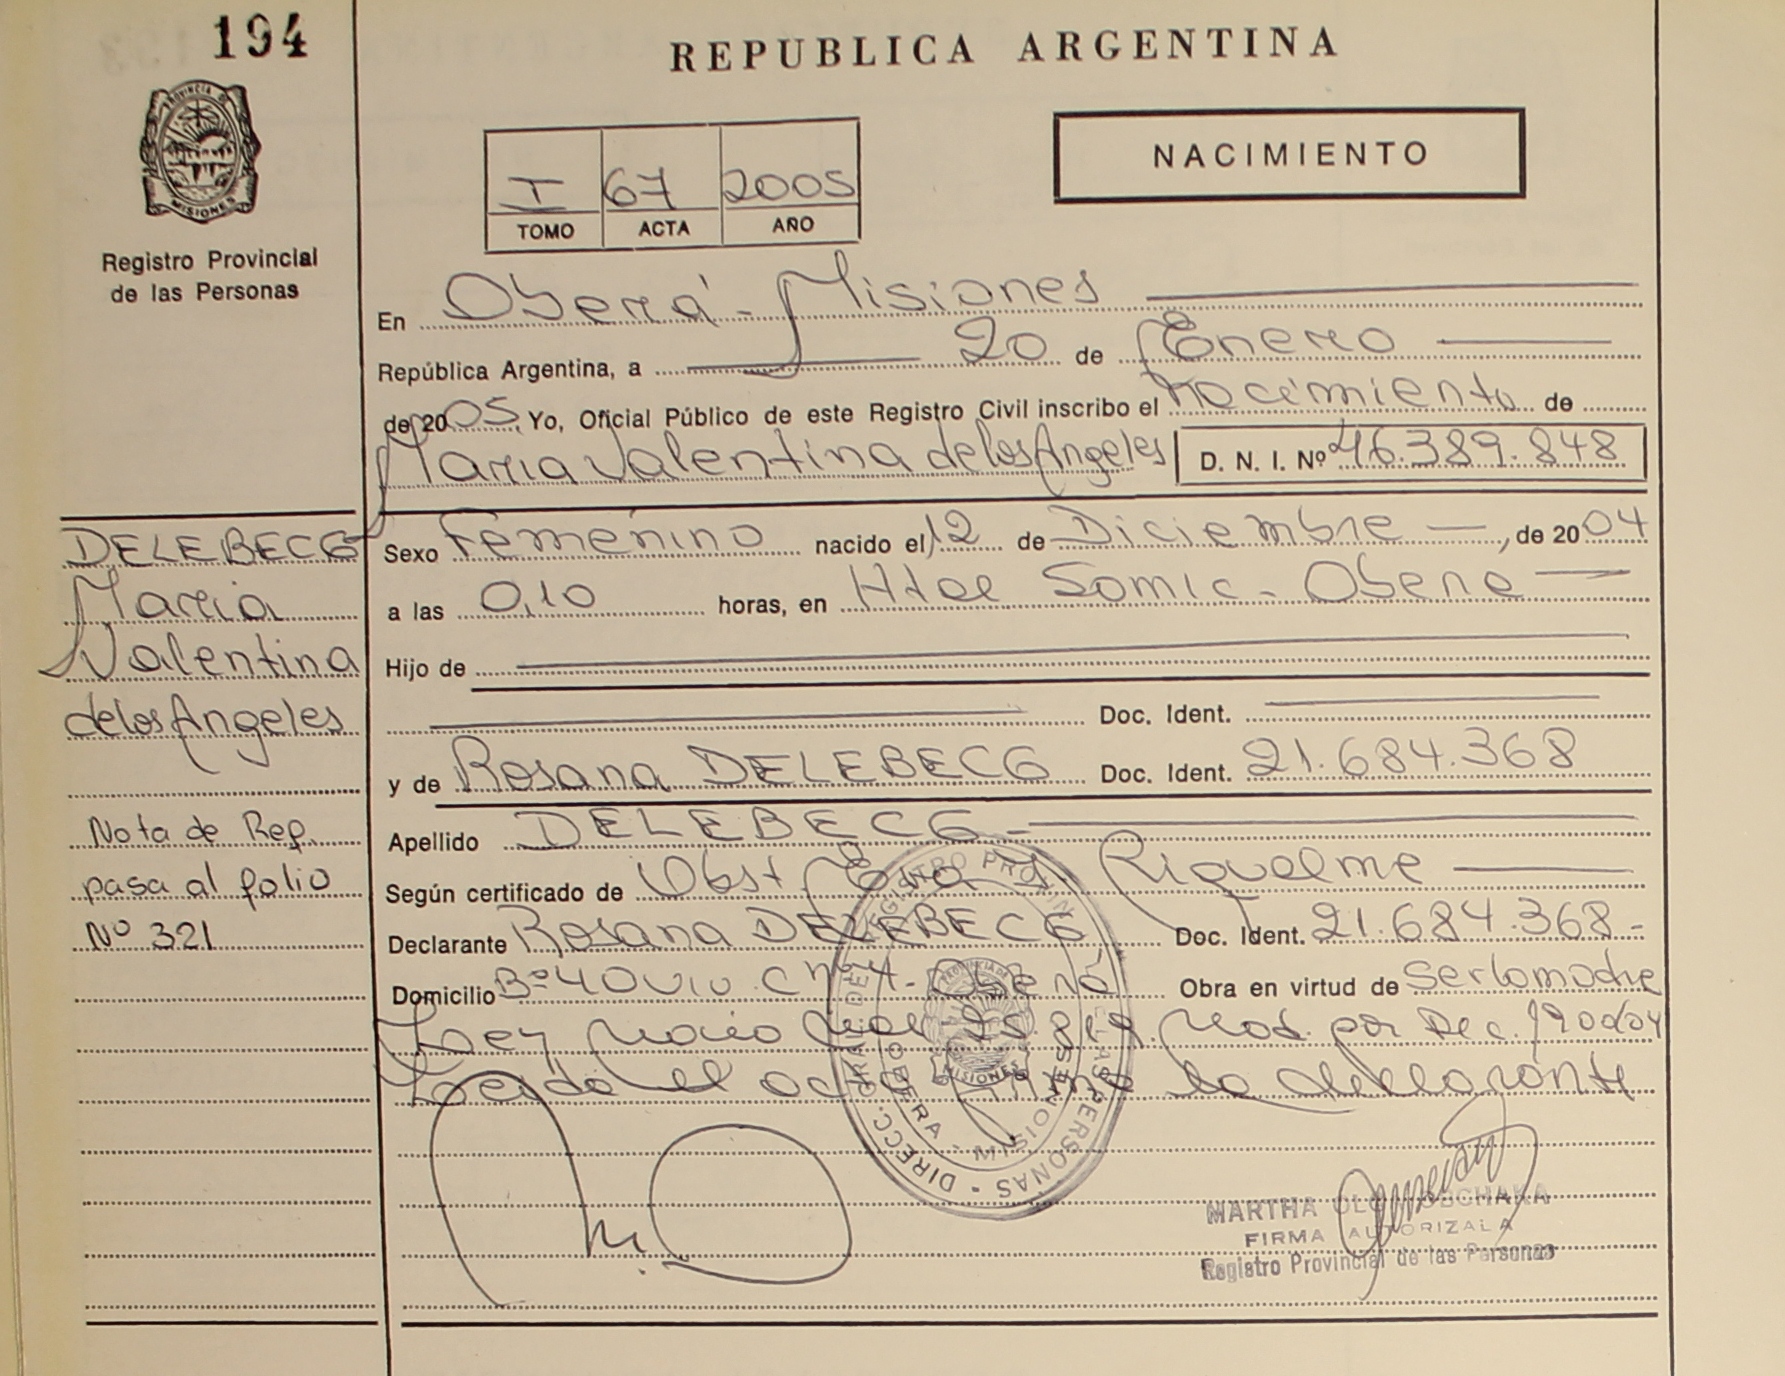 194
REPUBLICA ARGENTINA
NACIMIENTO
I 67 2005
TOMO ACTA AÑO
PROVINCIA DE
MISIONES
Registro Provincial
de las Personas
En Oberá - Misiones
República Argentina, a 20 de Enero
de 2005. Yo, Oficial Público de este Registro Civil inscribo el nacimiento de
Maria Valentina de los Angeles D. N. I. Nº 46.389.848
DELEBECG
Maria
Valentina
de los Angeles
Nota de Ref.
pasa al folio
Nº 321
Sexo Femenino nacido el 12 de Diciembre, de 2004
a las 0,10 horas, en Htal Samic - Obera
Hijo de
Doc. Ident.
y de Rosana DELEBECG Doc. Ident. 21.684.368
Apellido DELEBECG -
Según certificado de Obst Eva Riquelme
Declarante Rosana DELEBECG Doc. Ident. 21.684.368-
Domicilio Bº 40 Viv. C Oberá Obra en virtud de ser la madre
Ley Mod. por Dec. 1900/04
Leida el acta firma la declarante
DIRECC. GRAL. DEL REGISTRO PROVINCIAL DE LAS PERSONAS -
OBERA - MISIONES
PROVINCIA DE
MISIONES
MARTHA
FIRMA AUTORIZADA
Registro Provincial de las Personas